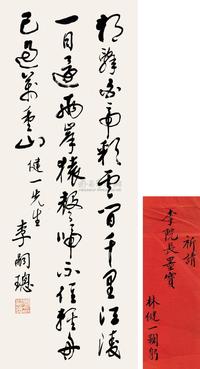 朝辭白帝彩雲間千里江陵
一日還兩岸猿聲啼不住輕舟
已過萬重山 健一先生
李嗣璁
祈請
李院長墨寶
林健一鞠躬